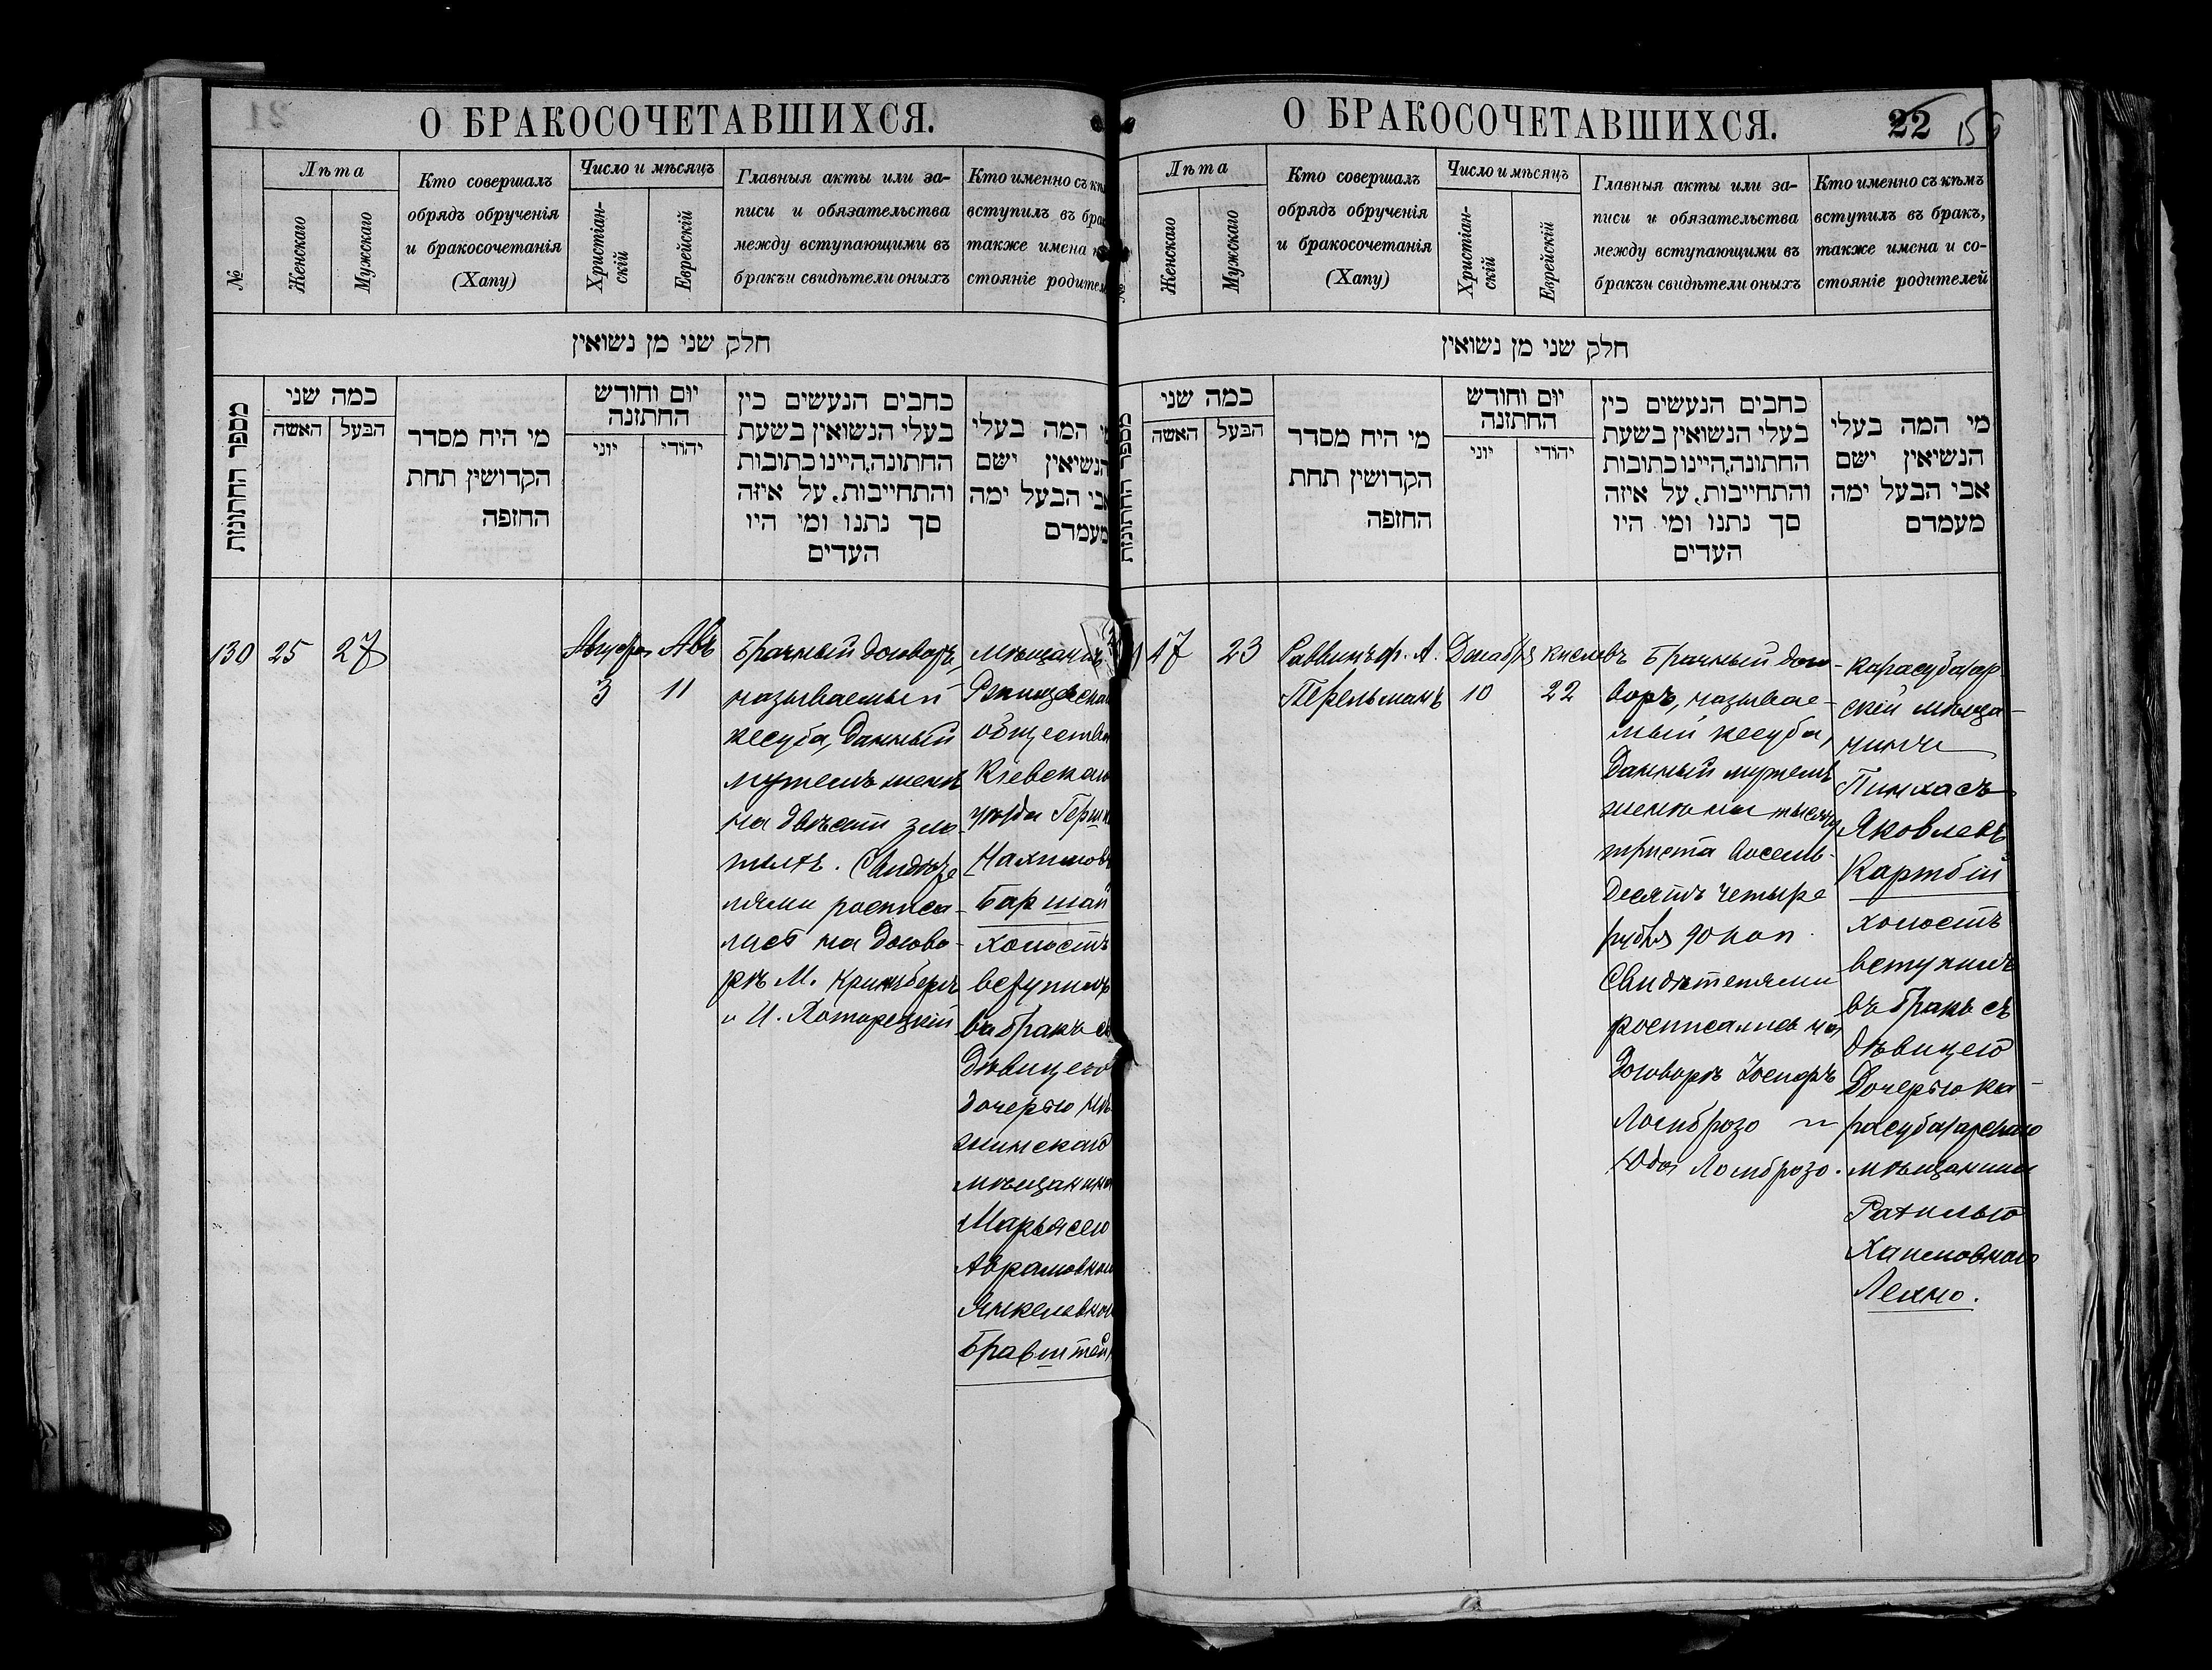 О БРАКОСОЧЕТАВШИХСЯ.
№
Лѣта
Женскаго
Мужскаго
Кто совершалъ
обрядъ обрученія
и бракосочетанія
(Хапу)
Число и мѣсяцъ
Христіан-
скій
Еврейскій
Главныя акты или за-
писи и обязательства
между вступающими въ
бракъи свидѣтели оныхъ
Кто именно съ
вступилъ въ
также имена
стояніе
חלק שני מן נשואין
מספר החתונות
כמה שני
האשה
הבעל
מי היח מסדר
הקדושין תחת
החופה
יום וחודש
החתונה
יוני
יהודי
כחבים הנעשים כין
בעלי הנשואין בשעת
החתונה,היינו כתובות
והתחייבות, על איזה
סך נתנו ומי היו
העדים
המה בעלי
הנשיאין ישם
אבי הבעל ימה
מעמדם
130
25
27
Августа
3
Авъ
11
Брачный договоръ,
называемый
кесуба, данный
мужемъ женѣ
на двѣсти зло-
тыхъ. Свидѣте
лями росписа-
лись на догово-
рѣ М. Кринбергъ
и И.
мѣщанинъ
общества
Кіевскаго
уѣзда
холостъ
вступилъ
въ бракъ съ
дѣвицею
дочерью Нѣ
жинскаго
мѣщанина
Марьясею
Аврамовною
Янкелевною
О БРАКОСОЧЕТАВШИХСЯ.
22
№
Лѣта
Женскаго
Мужскаго
Кто совершалъ
обрядъ обрученія
и бракосочетанія
(Хапу)
Число и мѣсяцъ
Христіан-
скій
Еврейскій
Главныя акты или за-
писи и обязательства
между вступающими въ
бракъи свидѣтели оныхъ
Кто именно съ кѣмъ
вступилъ въ бракъ,
также имена и со-
стояніе родителей
חלק שני מן נשואין
מספר החתונות
כמה שני
האשה
הבעל
מי היח מסדר
הקדושין תחת
החופה
יום וחודש
החתונה
יוני
יהודי
כחבים הנעשים כין
בעלי הנשואין בשעת
החתונה,היינו כתובות
והתחייבות, על איזה
סך נתנו ומי היו
העדים
מי המה בעלי
הנשיאין ישם
אבי הבעל ימה
מעמדם
17
23
Раввинъ А.
Перельманъ
Декабрь
10
кислевъ
22
Брачный дого-
воръ, называе-
мый кесуба,
данный мужемъ
женѣ на тысячу
триста восемь-
десятъ четыре
рубля 90 коп.
Свидѣтелями
росписались на
договорѣ Іосифъ
Ломброзо и
Юда Ломброзо.
карасубазар-
скій мѣща-
нинъ
Пинхасъ
Яковлевъ
холостъ
вступилъ
въ бракъ съ
дѣвицею
дочерью ка-
расубазарскаго
мѣщанина
Рахилью
Хаимовною
Лехно.